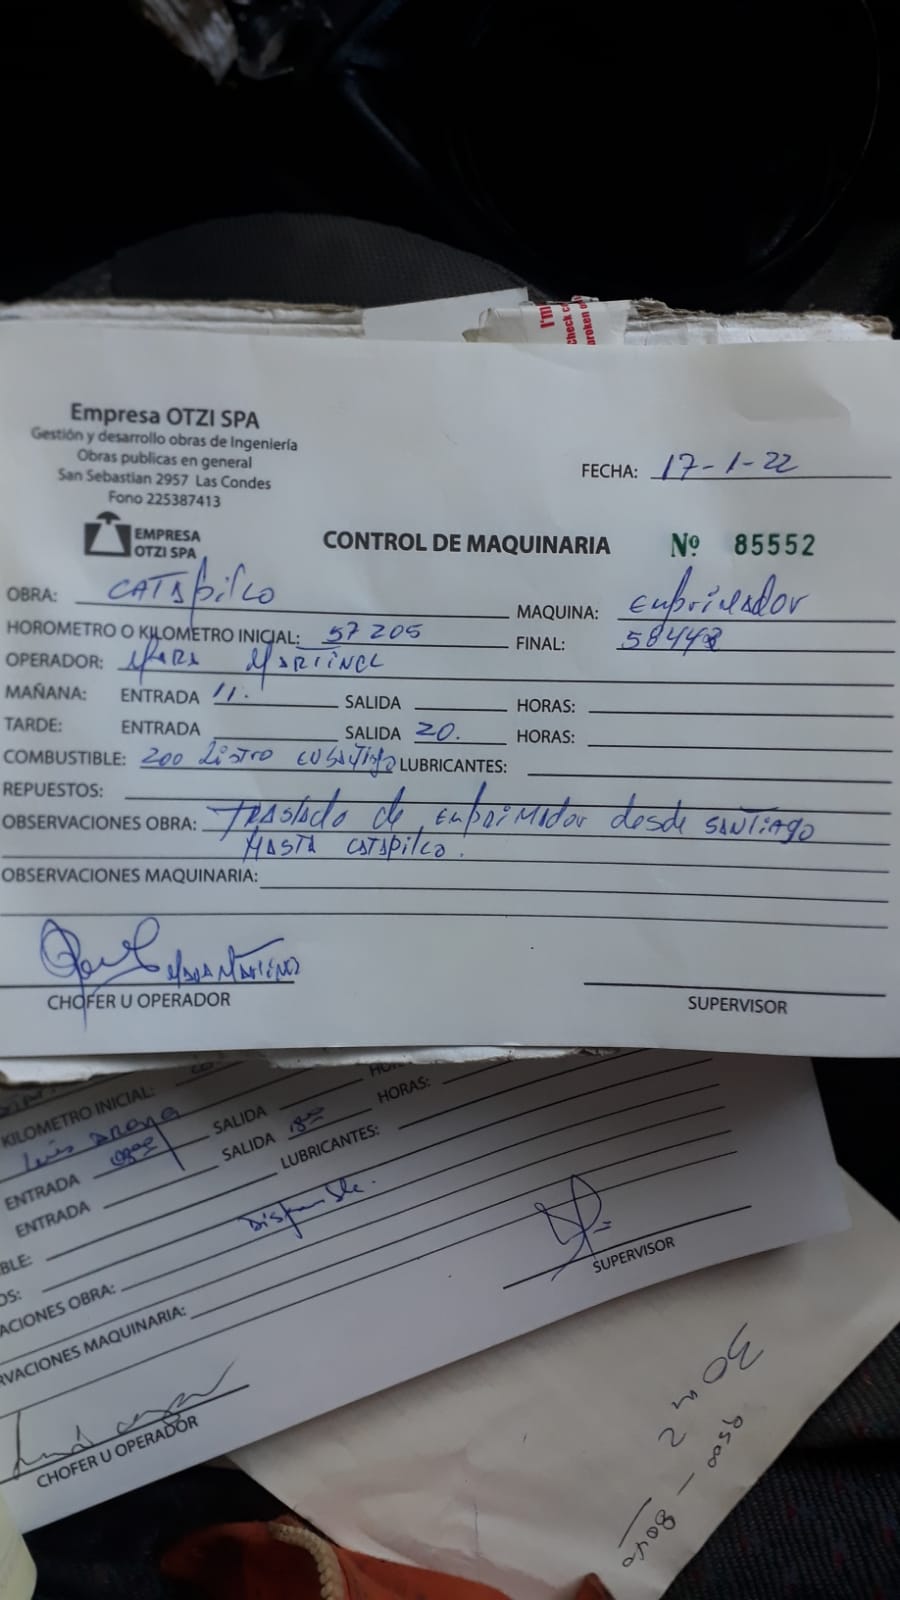 I'm
check c
broken o
Empresa OTZI SPA
Gestión y desarrollo obras de Ingeniería
Obras publicas en general
San Sebastian 2957 Las Condes
Fono 225387413
EMPRESA
OTZI SPA
FECHA: 17-1-22
CONTROL DE MAQUINARIA Nº 85552
OBRA: CATAPILCO MAQUINA: Enprimador
HOROMETRO O KILOMETRO INICIAL: 57205 FINAL: 58448
OPERADOR:
MAÑANA: ENTRADA 11. SALIDA HORAS:
TARDE: ENTRADA SALIDA 20. HORAS:
COMBUSTIBLE: 200 Listro LUBRICANTES:
REPUESTOS:
OBSERVACIONES OBRA: TRASLADO de Enprimador desde SANTIAGO
HASTA CATAPILCO.
OBSERVACIONES MAQUINARIA:
CHOFER U OPERADOR SUPERVISOR
KILOMETRO INICIAL:
Luis Araya
ENTRADA SALIDA HORAS:
ENTRADA SALIDA 18:00 HORAS:
BLE: LUBRICANTES:
OS: Disponible.
ACIONES OBRA:
RVACIONES MAQUINARIA:
CHOFER U OPERADOR SUPERVISOR
30 m2